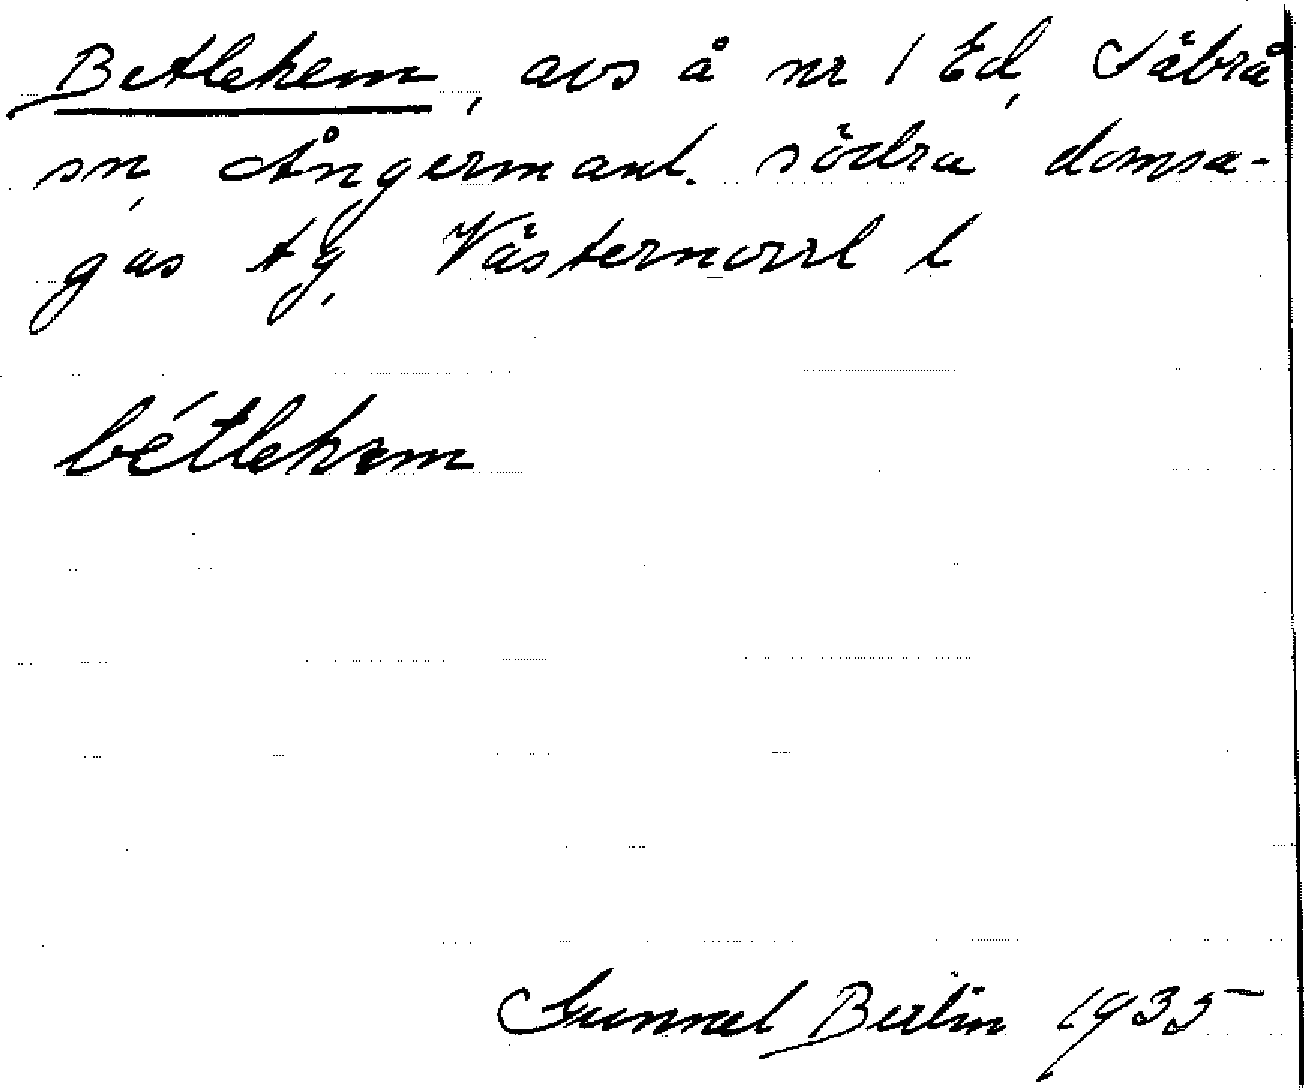 Betlehem, avs å nr 1 Ed, Säbrå
sn, Ångermanl. södra domsa-
gas tg, Västernorrl l
bétlehem
Gunnel Berlin 1935